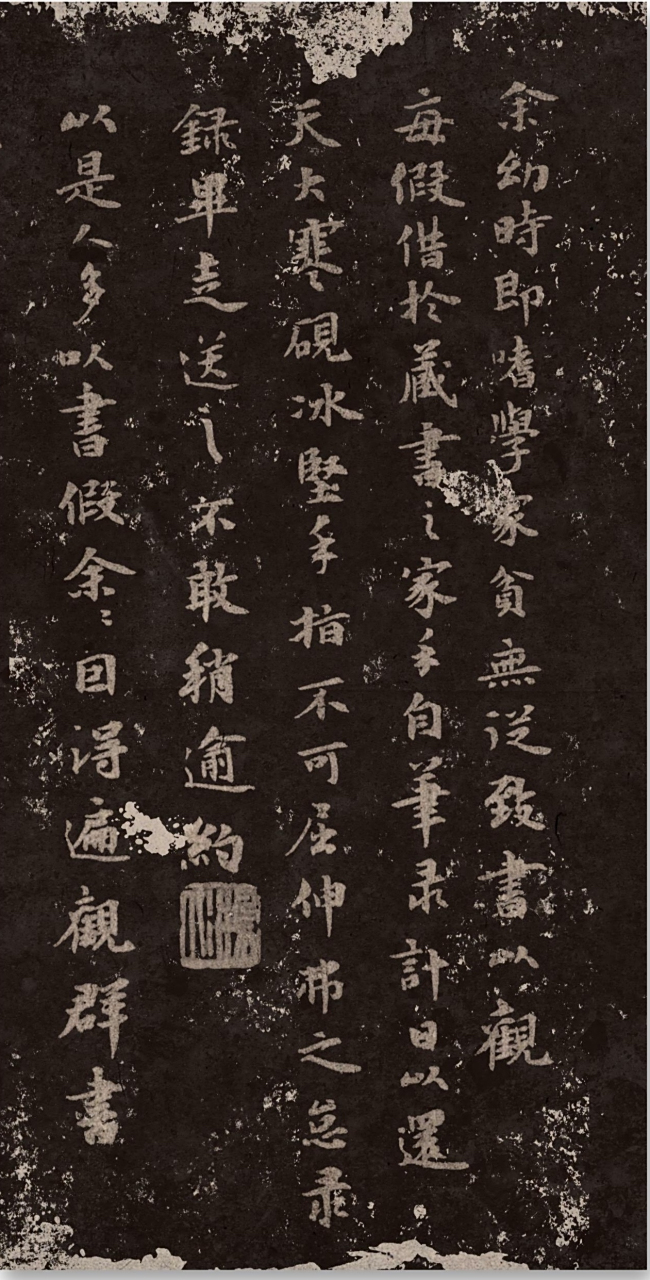 余幼時即嗜學家貧無從致書以觀
每假借於藏書之家手自筆录計日以還
天大寒硯冰堅手指不可屈伸弗之怠录
録畢走送之不敢稍逾約
以是人多以書假余余因得遍觀群書